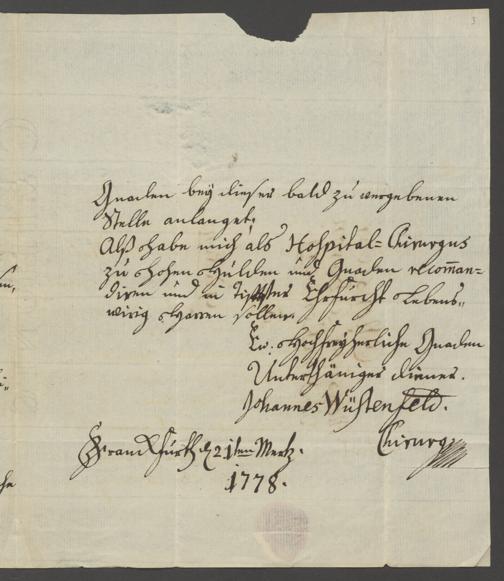 3
Gnaden bey dieser bald zu vergebenen
Stelle anlanget,
Alß habe mich als Hospital=Chirurgus
zu hohen Hulden und Gnaden recomman=
diren und in tiefster Ehrfurcht Lebens=
wirig harren sollen.
Ew. Hochfreyherliche Gnaden
Unterthäniger diener.
Johannes Wüstenfeld.
Chirurg
Franckfurth d 21ten Mertz.
1778.